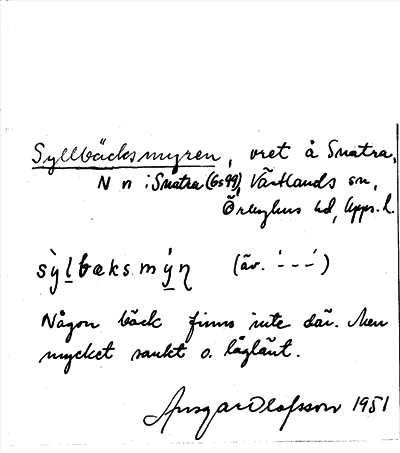 Syllbäcksmyren, vret å Snatra,
N n i Snatra (Gs 99), Vårtlands sn,
Örbyhus hd, Upps. l.
sỳl̲bæks.mý̲n̡ (äv. ´ – – ´)
Någon bäck finns inte där. Men
mycket sankt o. låglänt.
Ansgar Olofsson 1951